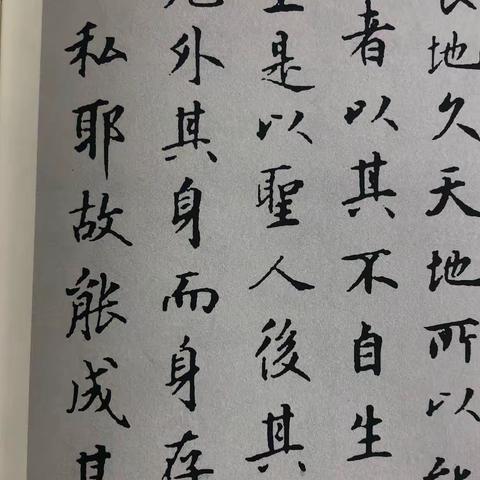 地久天地所以能
者以其不自生
生是以聖人後其
先外其身而身存
私耶故能成其